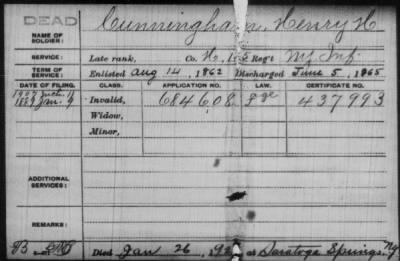 DEAD
NAME OF SOLDIER: Cunningham, Henry H
SERVICE: Late rank, Co. H, Reg't N.Y. Inf.
TERM OF SERVICE: Enlisted Aug 14, 1862 Discharged June 5, 1865
DATE OF FILING. CLASS. APPLICATION NO. LAW. CERTIFICATE NO.
1889 Jan. 9 Invalid, 684608 437993
Widow,
Minor,
ADDITIONAL SERVICES:
REMARKS:
Died Jan 26, 192 at Saratoga Springs, N.Y.